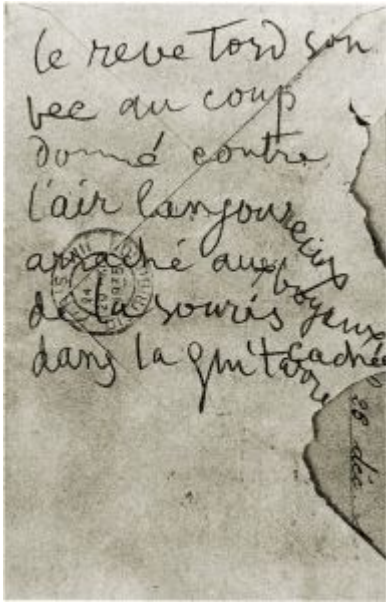 le reve tord son
bec au coup
donné contre
l'air langoureux
arraché aux boyaux
de la souris cachée
dans la guitarre
28 déc